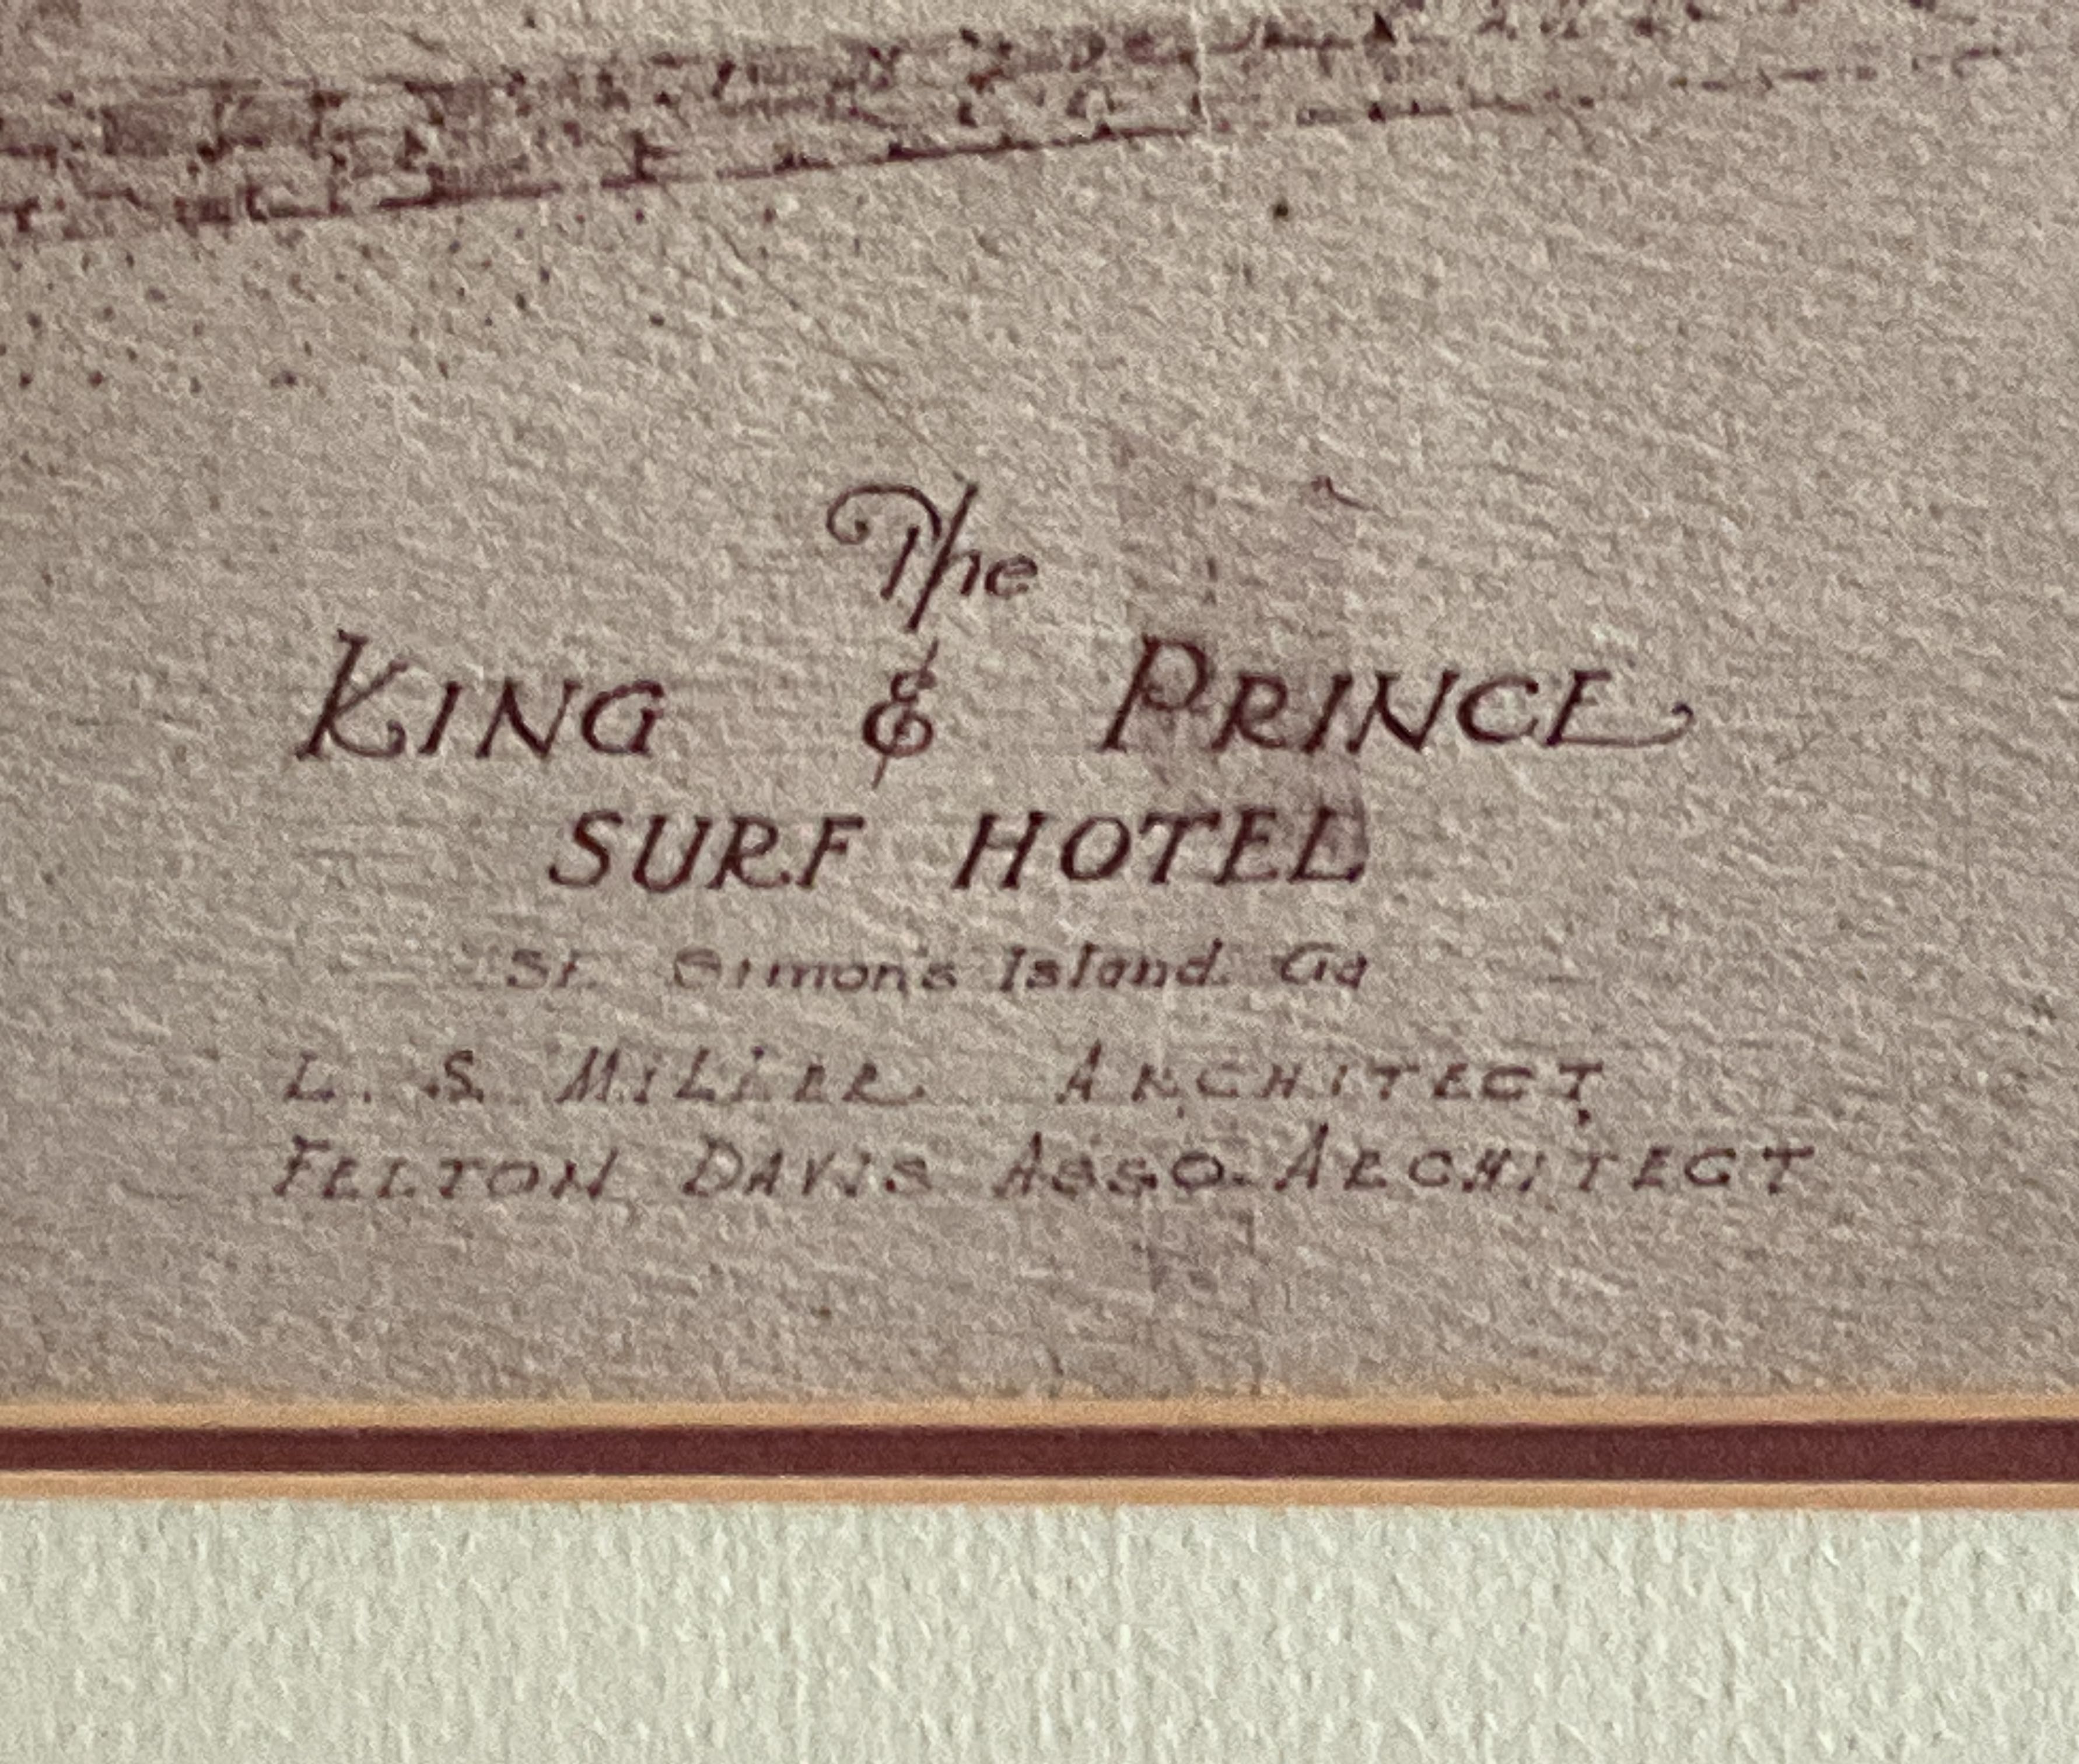 The
KING & PRINCE
SURF HOTEL
St. Simon's Island Ga
L. S. MILLER ARCHITECT
FELTON DAVIS ASSO. ARCHITECT